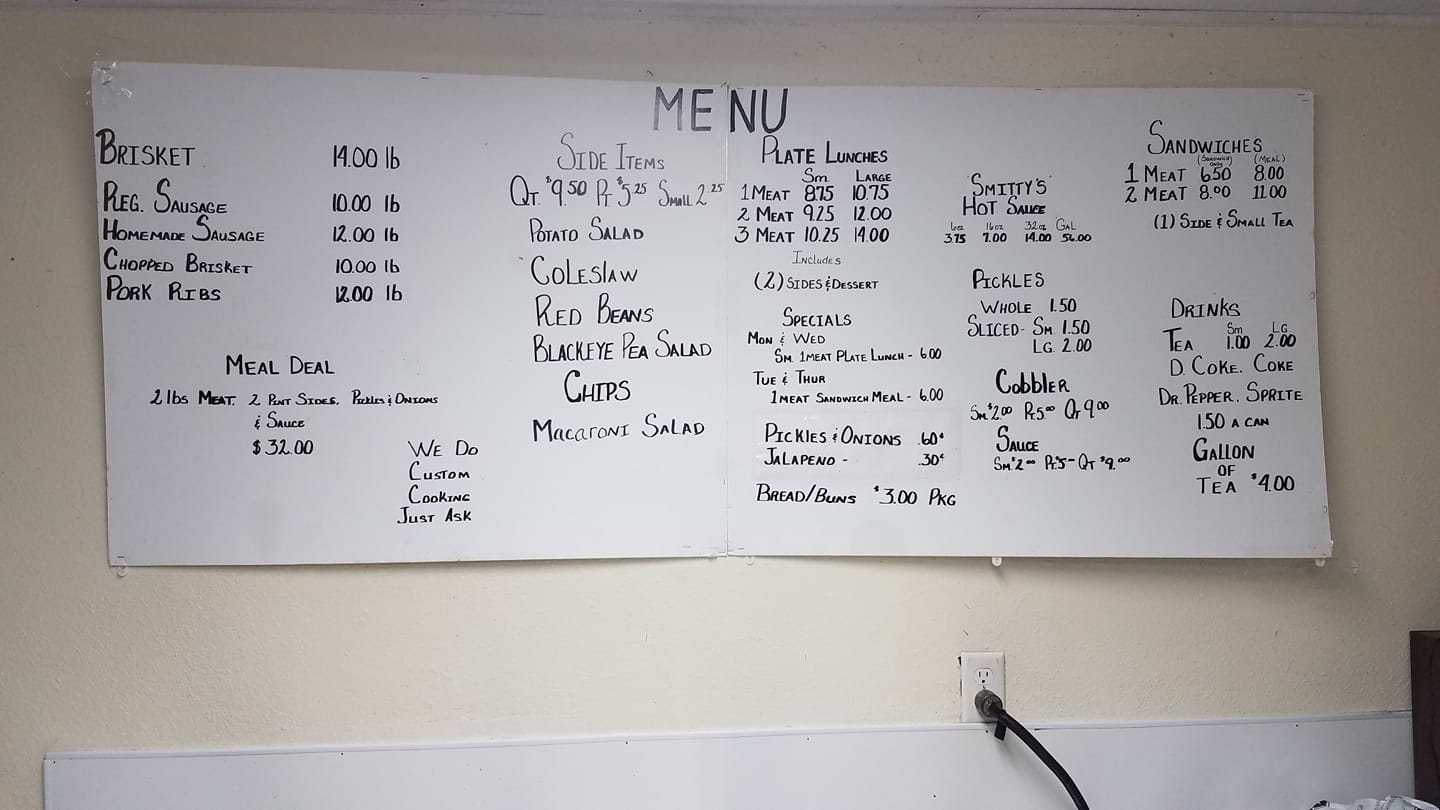 MENU
BRISKET 14.00 lb
REG. SAUSAGE 10.00 lb
HOMEMADE SAUSAGE 12.00 lb
CHOPPED BRISKET 10.00 lb
PORK RIBS 12.00 lb
MEAL DEAL
2 lbs MEAT. 2 PINT SIDES. PICKLES & ONIONS
& SAUCE
$32.00
WE DO
CUSTOM
COOKING
JUST ASK
SIDE ITEMS
QT. $9.50 PT $5.25 SMALL 2.25
POTATO SALAD
COLESLAW
RED BEANS
BLACKEYE PEA SALAD
CHIPS
MACARONI SALAD
PLATE LUNCHES
SM LARGE
1 MEAT 8.75 10.75
2 MEAT 9.25 12.00
3 MEAT 10.25 14.00
INCLUDES
(2) SIDES & DESSERT
SPECIALS
MON & WED
SM. 1 MEAT PLATE LUNCH - 6.00
TUE & THUR
1 MEAT SANDWICH MEAL - 6.00
PICKLES & ONIONS .60¢
JALAPENO - .30¢
BREAD/BUNS $3.00 PKG
SMITTY'S
HOT SAUCE
6oz 16oz 32oz GAL
3.75 7.00 14.00 56.00
PICKLES
WHOLE 1.50
SLICED - SM. 1.50
LG. 2.00
COBBLER
SM $2.00 PT. 5.00 QT 9.00
SAUCE
SM $2.00 PT. $5- QT $9.00
SANDWICHES
(SANDWICH ONLY) (MEAL)
1 MEAT 6.50 8.00
2 MEAT 8.00 11.00
(1) SIDE & SMALL TEA
DRINKS
SM LG
TEA 1.00 2.00
D. COKE. COKE
DR. PEPPER. SPRITE
1.50 A CAN
GALLON
OF
TEA $4.00